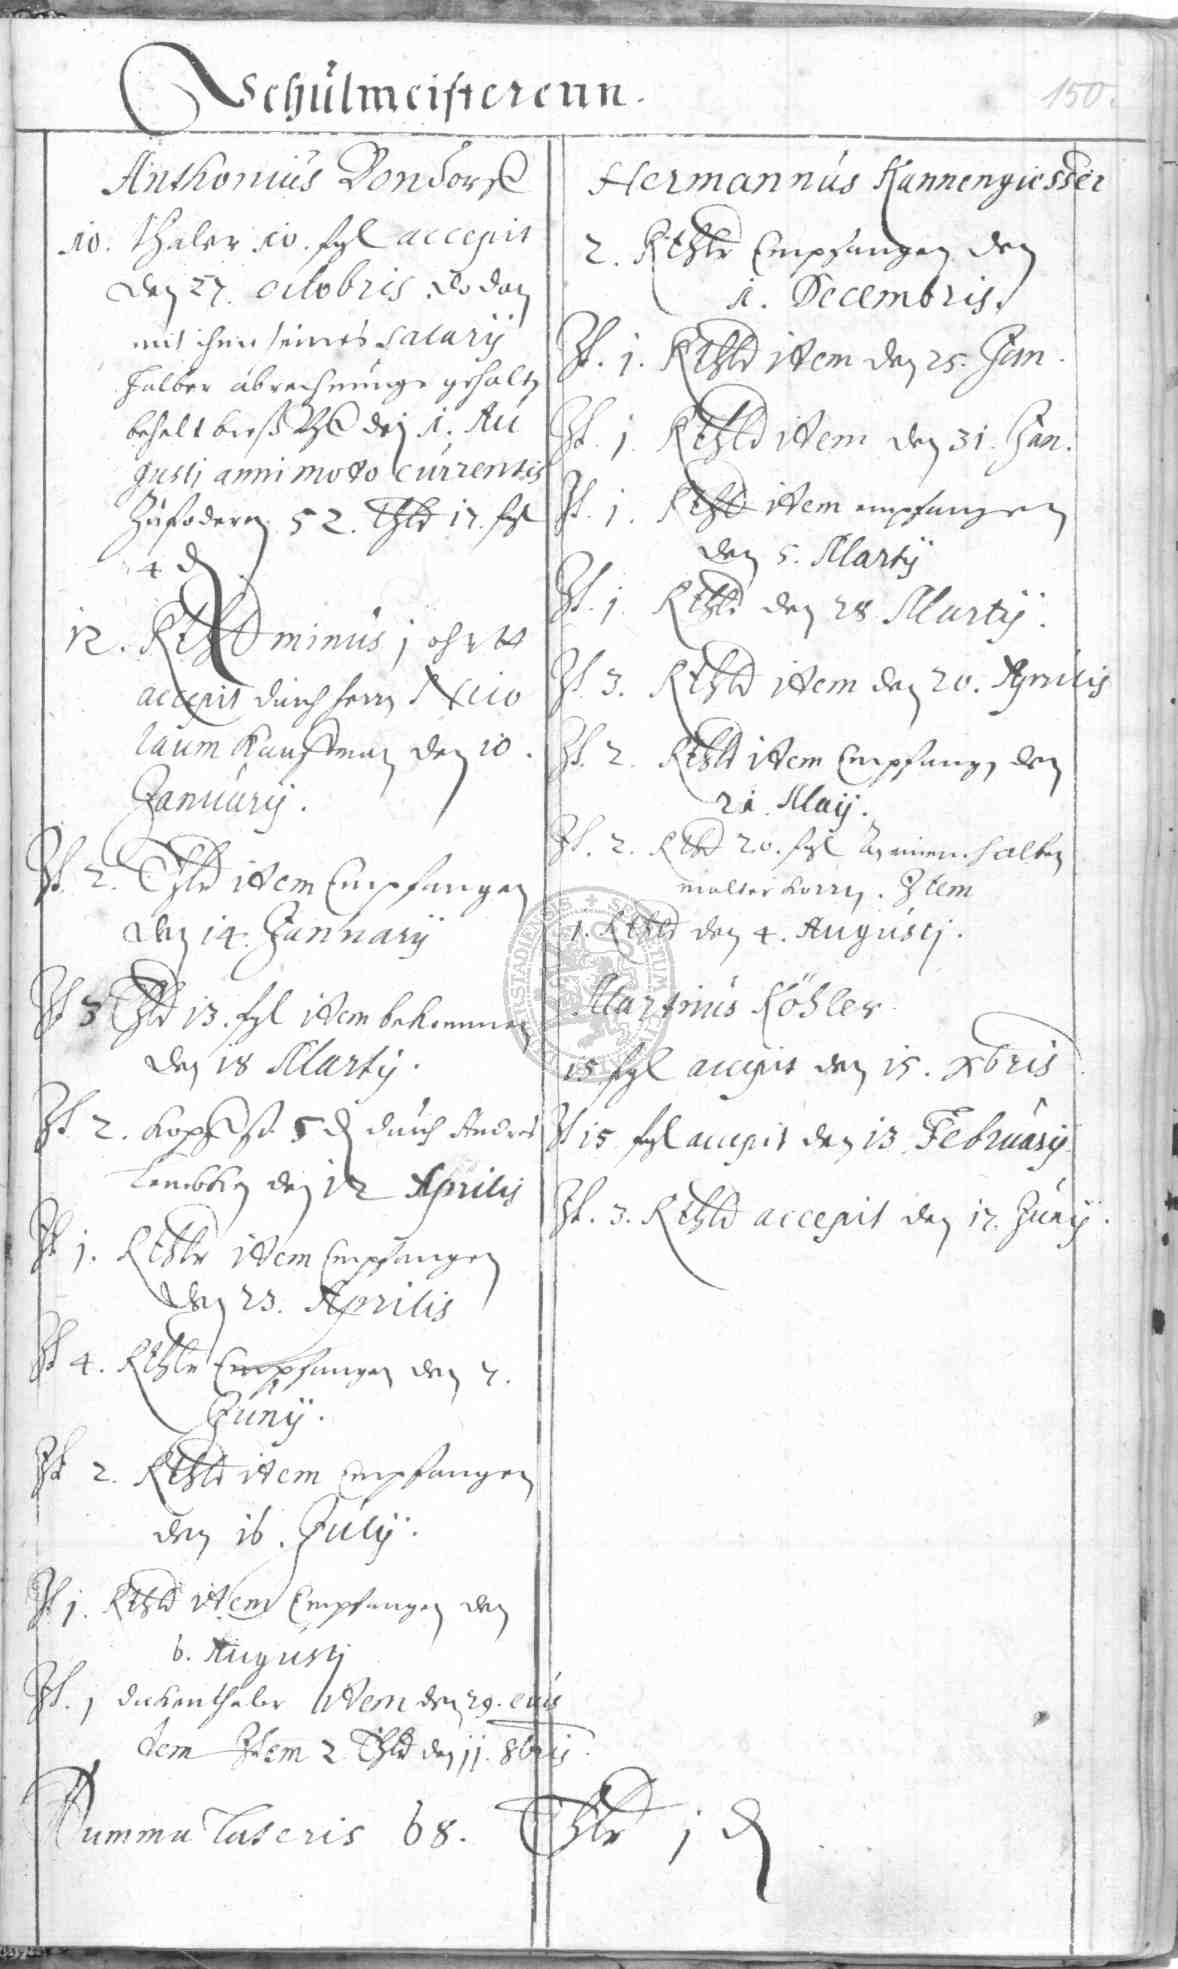 Schúlmeisterenn.
150.
Anthoniús Dondorff
10. thaler 10. fgl accepit
den 27. octobris, do dan
mit ihm seines salarÿ
halber abrechnúng gehalten
behelt den 1. Au
gusti anni modo cúrrentis
Zúfodern 52. Thlr 17. fgl
4 d
12. Rthlr minús j ohrt
accepit dúrch hern Nico
laum Kauffman den 10.
Januárÿ.
It. 2. Thlr item Empfangen
den 14. Januarÿ
It 3 Thlr 13. fgl item bekommen
den 18 Martÿ.
It 2. kopfst. 5 d dúrch Andres
den 12 Aprilis
It 1. Rthlr item Empfangen
den 23. Aprilis
It 4. Rthlr Empfangen den 7.
Júnÿ.
It 2. Rthlr item Empfangen
den 16. Júlÿ.
It j. Rthlr item Empfangen den
6. Augústj
It. 1 dickenthaler item den 29. eius
dem Item 2 Thlr den 11. 8bris.
Summa lateris 68. Thlr j d
Hermannús Kannengiesser
2. Rthlr Empfangen den
1. Decembris.
It. j. Rthlr item den 25. Jan.
It. j Rthlr item den 31. Jan.
It. j. Rthlr item empfangen
den 5. Martÿ
It. j. Rthlr den 28 Martÿ.
It. 3. Rthlr item den 20. Aprilis
It. 2. Rthlr item Empfangen den
21. Maÿ.
It. 2. Rthlr 20. fgl zu einem halben
malter korn. Item
1. Rthlr den 4. Augústj.
Martinús Köhler
15 fgl accepit den 15. Xbris.
It 15 fgl accepit den 13 Februárÿ
It. 3. Rthlr accepit den 17. Júnÿ.